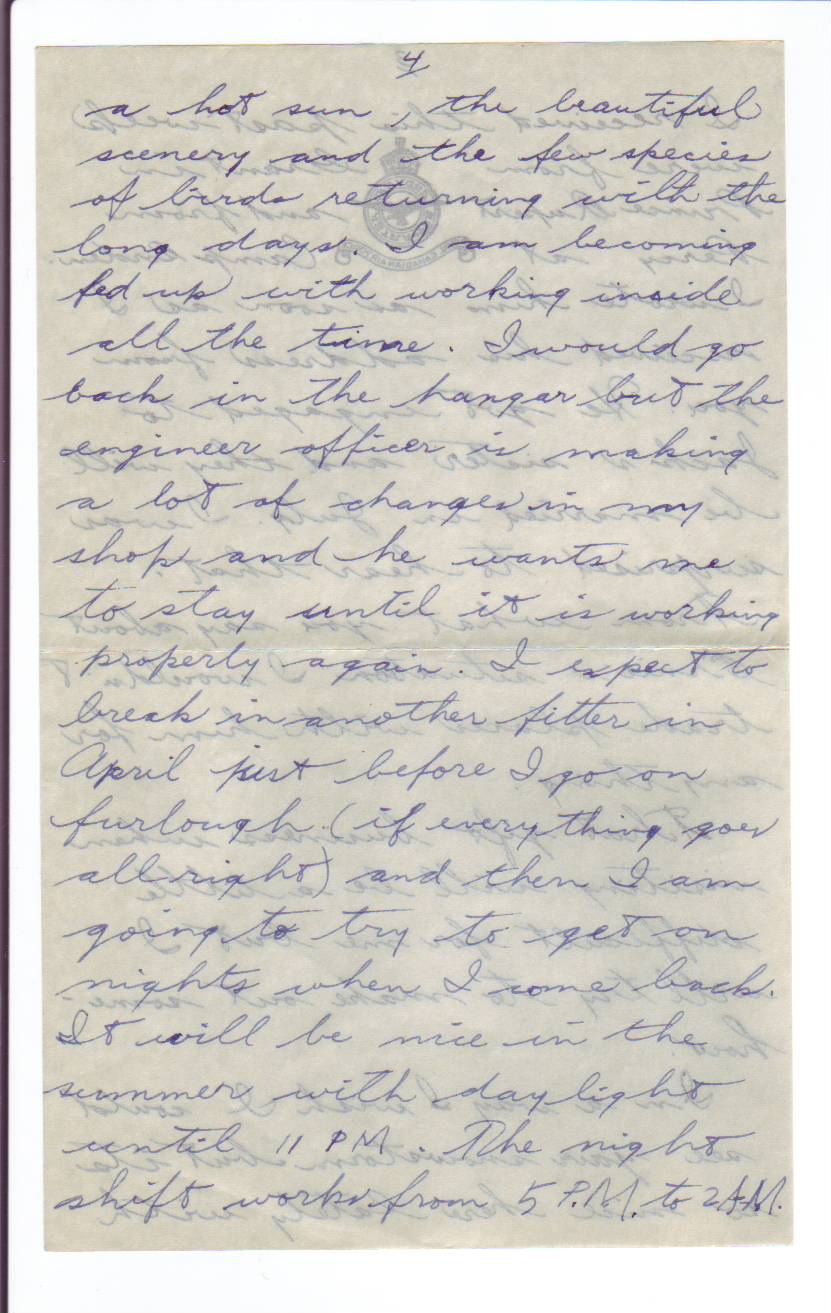 4
a hot sun, the beautiful
scenery and the few species
of birds returning with the
long days. I am becoming
fed up with working inside
all the time. I would go
back in the hangar but the
engineer officer is making
a lot of changes in my
shop and he wants me
to stay until it is working
properly again. I expect to
break in another fitter in
April just before I go on
furlough (if everything goes
all right) and then I am
going to try to get on
nights when I come back.
It will be nice in the
summer with daylight
until 11 PM. The night
shift works from 5 P.M. to 2 A.M.